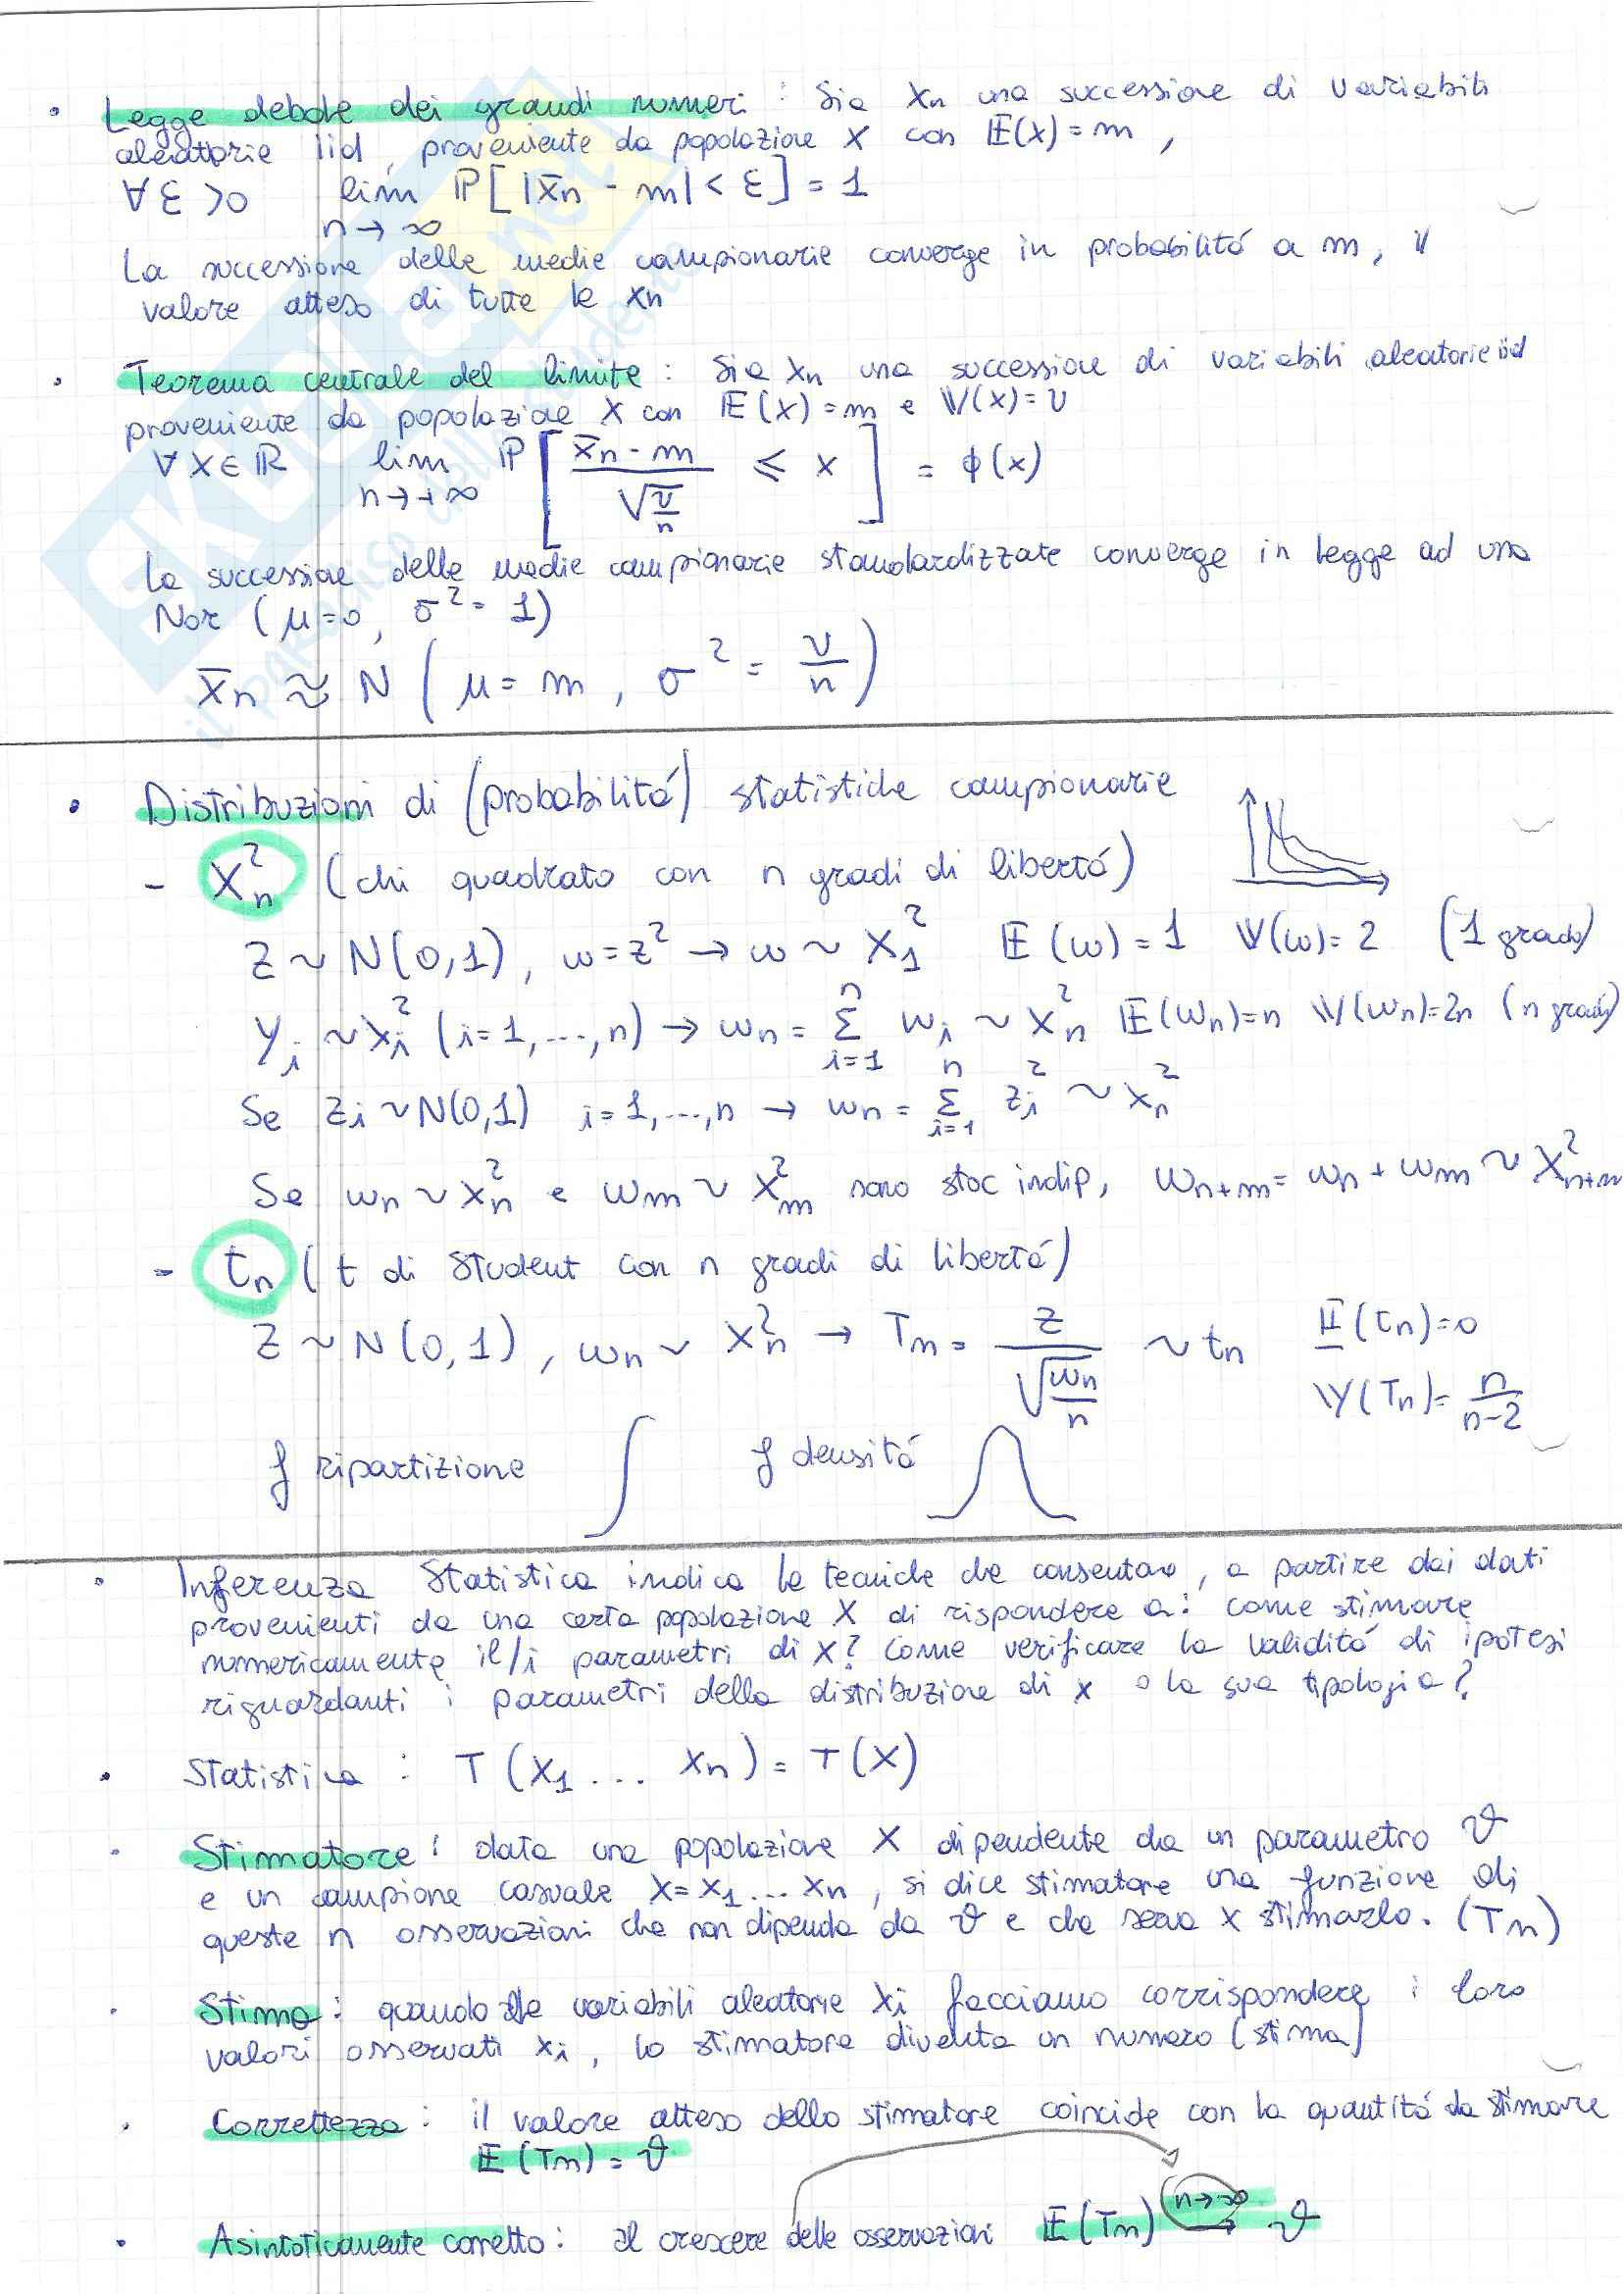 • Legge debole dei grandi numeri : Sia Xn una successione di variabili
aleatorie iid, proveniente da popolazione X con 𝔼(X)=m,
∀ε>0 lim n→∞ ℙ[|X̄n - m|<ε]=1
La successione delle medie campionarie converge in probabilitá a m, il
valore atteso di tutte le Xn
• Teorema centrale del limite : Sia Xn una successione di variabili aleatorie iid
proveniente da popolazione X con 𝔼(X)=m e 𝕍(X)=v
∀X∈ℝ lim n→+∞ ℙ[(X̄n-m)/√(v/n) ≤ x] = φ(x)
La successione delle medie campionarie standardizzate converge in legge ad una
Nor (μ=0, σ²=1)
X̄n ≈ N(μ=m, σ²=v/n)
• Distribuzioni di (probabilitá) statistiche campionarie
- X²n (chi quadrato con n gradi di libertá)
Z~N(0,1), w=z² → w~X²1 𝔼(w)=1 𝕍(w)=2 (1 grado)
Yi ~X²i (i=1,...,n) → wn = Σ i=1 n wi ~ X²n 𝔼(wn)=n 𝕍(wn)=2n (n gradi)
Se Zi~N(0,1) i=1,...,n → wn = Σ i=1 n Zi² ~ X²n
Se wn~X²n e wm~X²m sono stoc indip, wn+m = wn+wm ~ X²n+m
- tn (t di Student con n gradi di libertá)
Z~N(0,1), wn~X²n → Tn = Z/√(wn/n) ~ tn 𝔼(Tn)=0
𝕍(Tn)=n/(n-2)
f ripartizione f densitá
• Inferenza Statistica indica le tecniche che consentono, a partire dai dati
provenienti da una certa popolazione X di rispondere a: come stimare
numericamente il/i parametri di X? Come verificare la validitá di ipotesi
riguardanti i parametri della distribuzione di X o la sua tipologia?
• Statistica : T(X1... Xn)=T(X)
• Stimatore : data una popolazione X dipendente da un parametro ϑ
e un campione casuale X=X1...Xn, si dice stimatore una funzione di
queste n osservazioni che non dipenda da ϑ e che serva x stimarlo. (Tn)
• Stima : quando alle variabili aleatorie Xi facciamo corrispondere i loro
valori osservati xi, lo stimatore diventa un numero (stima)
• Correttezza : il valore atteso dello stimatore coincide con la quantitá da stimare
𝔼(Tn)=ϑ
• Asintoticamente corretto : al crescere delle osservazioni 𝔼(Tn) n→∞ → ϑ